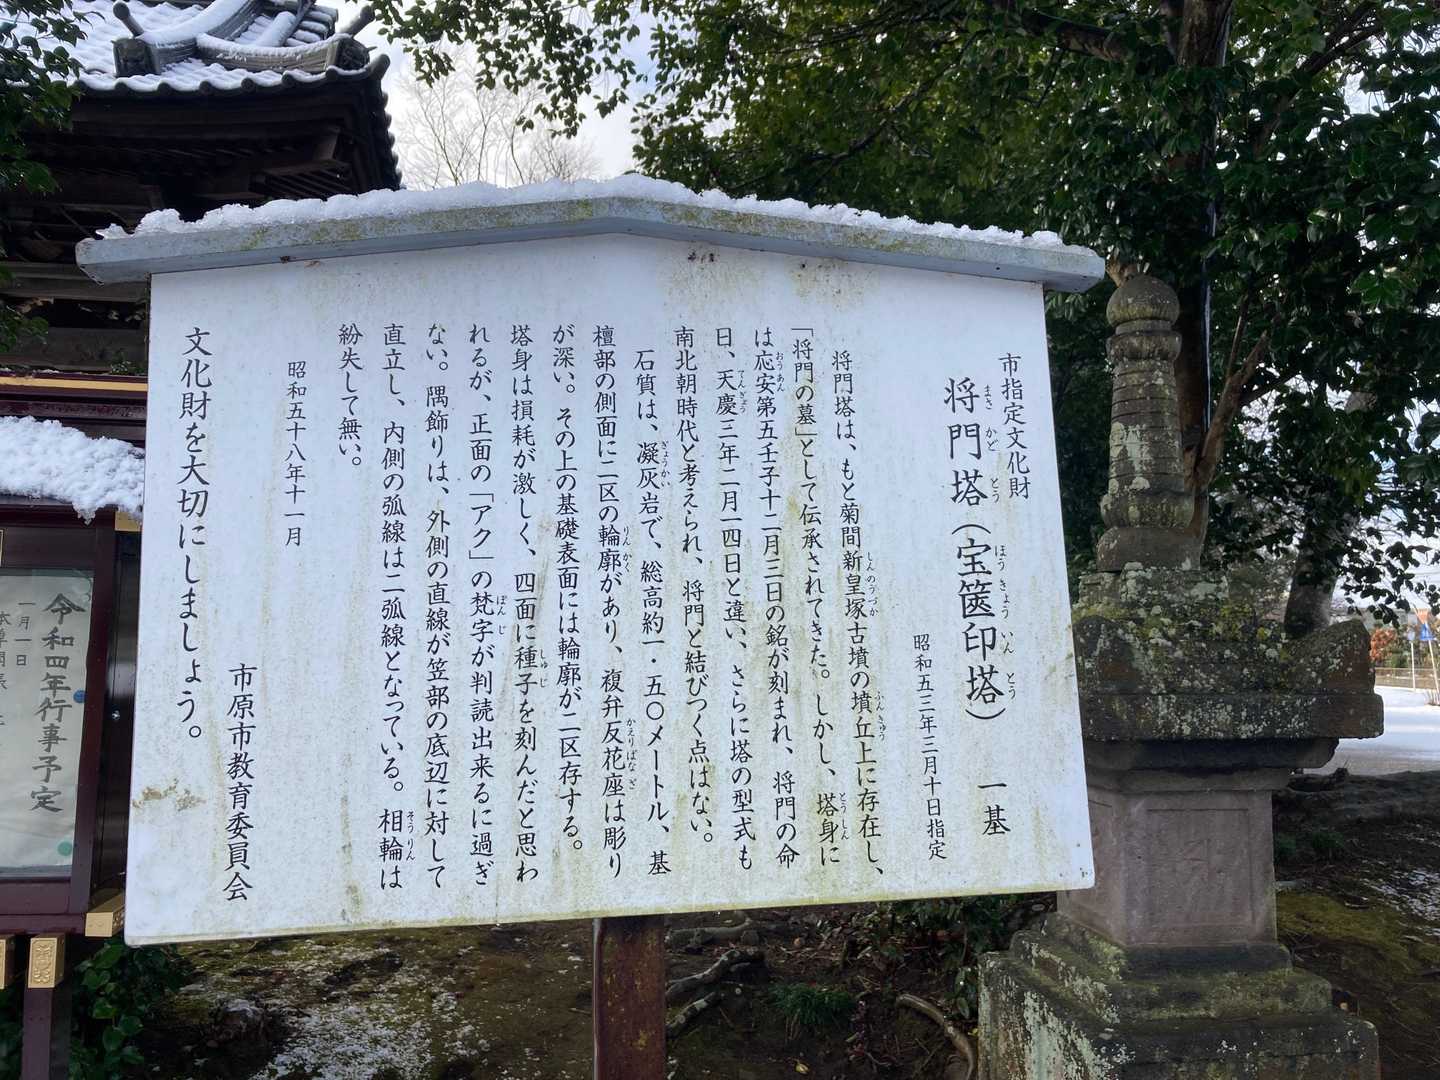 市指定文化財
将門塔（宝篋印塔）　一基
まさ かど とう ほう きょう いん とう
昭和五三年三月十日指定
将門塔は、もと菊間新皇塚古墳の墳丘上に存在し、
しんのうづか ふんきゅう
「将門の墓」として伝承されてきた。しかし、塔身に
とうしん
は応安第五壬子十二月三日の銘が刻まれ、将門の命
おうあん
日、天慶三年二月一四日と違い、さらに塔の型式も
てんぎょう
南北朝時代と考えられ、将門と結びつく点はない。
石質は、凝灰岩で、総高約一・五〇メートル、基
ぎょうかい
檀部の側面に二区の輪廓があり、複弁反花座は彫り
りんかく かえりばなざ
が深い。その上の基礎表面には輪廓が二区存する。
塔身は損耗が激しく、四面に種子を刻んだと思わ
しゅじ
れるが、正面の「アク」の梵字が判読出来るに過ぎ
ぼんじ
ない。隅飾りは、外側の直線が笠部の底辺に対して
直立し、内側の弧線は二弧線となっている。相輪は
そうりん
紛失して無い。
昭和五十八年十一月
市原市教育委員会
文化財を大切にしましょう。
令和四年行事予定
一月一日